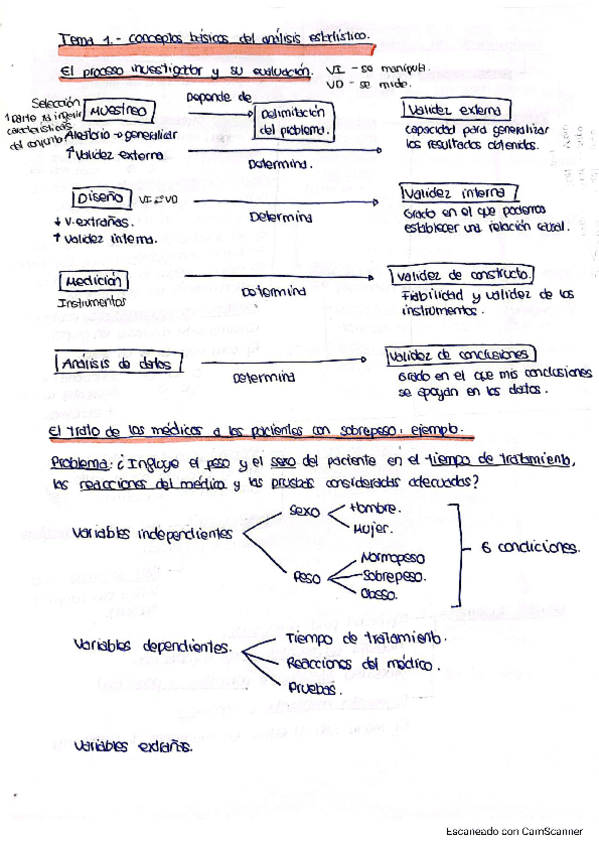 Tema 1.- conceptos básicos del análisis estadístico.
El proceso investigador y su evaluación. VI - se manipula.
VD - se mide.
Selección
características
del conjunto.
MUESTREO
Depende de
Delimitación
del problema.
Validez externa
Aleatorio → generalizar
↑ Validez externa
Determina.
capacidad para generalizar
los resultados obtenidos.
Diseño
VI VD
↓ V. extrañas.
↑ Validez interna.
Determina
Validez interna
Grado en el que podemos
establecer una relación causal.
Medición
Instrumentos
Determina
Validez de constructo.
Fiabilidad y validez de los
instrumentos.
Análisis de datos
Determina
Validez de conclusiones
Grado en el que mis conclusiones
se apoyan en los datos.
El trato de los médicos a los pacientes con sobrepeso: ejemplo.
Problema: ¿Influye el peso y el sexo del paciente en el tiempo de tratamiento,
las reacciones del médico y las pruebas consideradas adecuadas?
Variables independientes
Sexo
Hombre.
Mujer.
Peso
Normopeso
Sobrepeso.
Obeso.
6 condiciones.
Variables dependientes.
Tiempo de tratamiento.
Reacciones del médico.
Pruebas.
Variables extrañas.
Escaneado con CamScanner